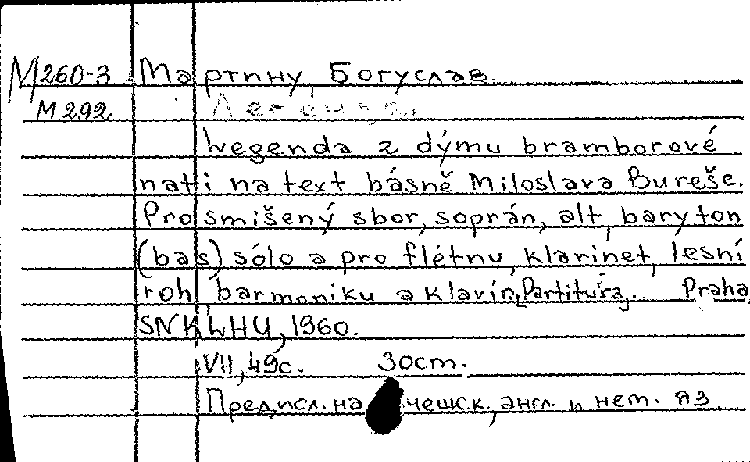 М260-3 Мартину, Богуслав.
М292. Легенда.
Legenda z dýmu bramborové
nati na text básně Miloslava Bureše.
Pro smíšený sbor, soprán, alt, baryton
(bas) sólo a pro flétnu, klarinet, lesní
roh, harmoniku a klavír. Partitura. Praha,
SNKLHU, 1960.
VII, 49с. 30cm.
Предисл. на чешск., англ. и нем. яз